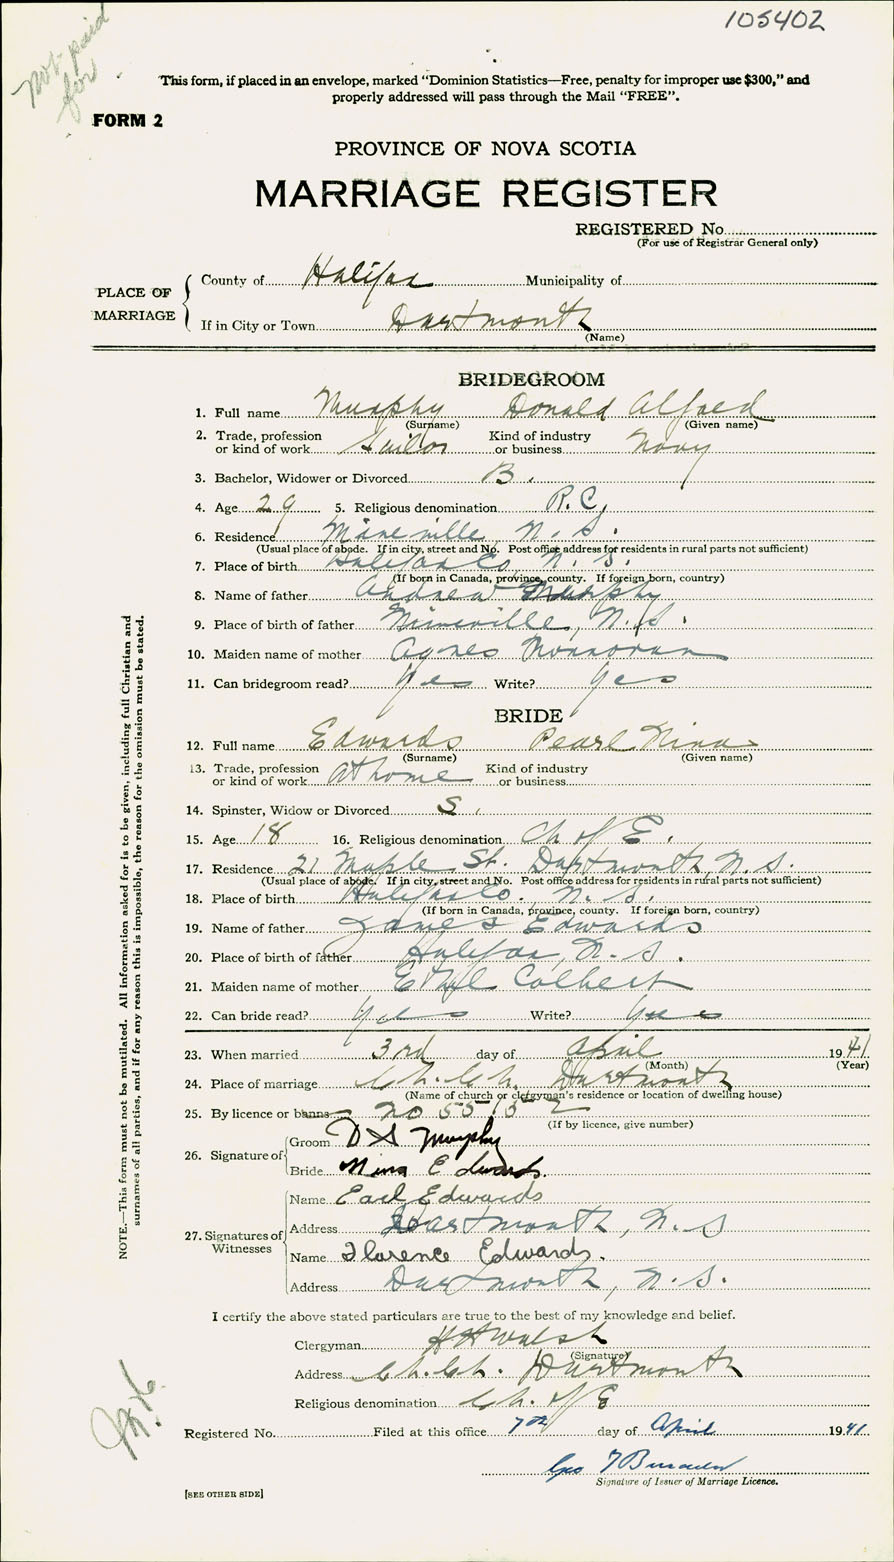 105402
Not paid
for
This form, if placed in an envelope, marked "Dominion Statistics—Free, penalty for improper use $300," and
properly addressed will pass through the Mail "FREE".
FORM 2
PROVINCE OF NOVA SCOTIA
MARRIAGE REGISTER
REGISTERED No.
(For use of Registrar General only)
PLACE OF MARRIAGE
County of Halifax Municipality of
If in City or Town Dartmouth
(Name)
BRIDEGROOM
1. Full name Murphy Donald Alfred
(Surname) (Given name)
2. Trade, profession or kind of work Sailor Kind of industry or business Navy
3. Bachelor, Widower or Divorced B.
4. Age 29 5. Religious denomination R.C.
6. Residence Mineville N.S.
(Usual place of abode. If in city, street and No. Post office address for residents in rural parts not sufficient)
7. Place of birth Halifax Co. N.S.
(If born in Canada, province, county. If foreign born, country)
8. Name of father Andrew Murphy
9. Place of birth of father Mineville, N.S.
10. Maiden name of mother Agnes
11. Can bridegroom read? Yes Write? Yes
BRIDE
12. Full name Edwards Pearl Nina
(Surname) (Given name)
13. Trade, profession or kind of work At home Kind of industry or business
14. Spinster, Widow or Divorced S.
15. Age 18 16. Religious denomination Ch of E.
17. Residence 21 Maple St. Dartmouth, N.S.
(Usual place of abode. If in city, street and No. Post office address for residents in rural parts not sufficient)
18. Place of birth Halifax Co. N.S.
(If born in Canada, province, county. If foreign born, country)
19. Name of father James Edwards
20. Place of birth of father Halifax, N.S.
21. Maiden name of mother Ethel Colbert
22. Can bride read? Yes Write? Yes
23. When married 3rd day of April 1941
(Month) (Year)
24. Place of marriage Ch. Ch. Dartmouth
(Name of church or clergyman's residence or location of dwelling house)
25. By licence or banns No 55152
(If by licence, give number)
26. Signature of
Groom D A Murphy
Bride Nina Edwards.
27. Signatures of Witnesses
Name Earl Edwards
Address Dartmouth, N.S
Name Florence Edwards.
Address Dartmouth, N.S.
I certify the above stated particulars are true to the best of my knowledge and belief.
Clergyman H H Walsh
(Signature)
Address Ch. Ch. Dartmouth
Religious denomination Ch. of E
Registered No. Filed at this office 7th day of April 1941
Geo
Signature of Issuer of Marriage Licence.
[SEE OTHER SIDE]
NOTE.—This form must not be mutilated. All information asked for is to be given, including full Christian and
surnames of all parties, and if for any reason this is impossible, the reason for the omission must be stated.